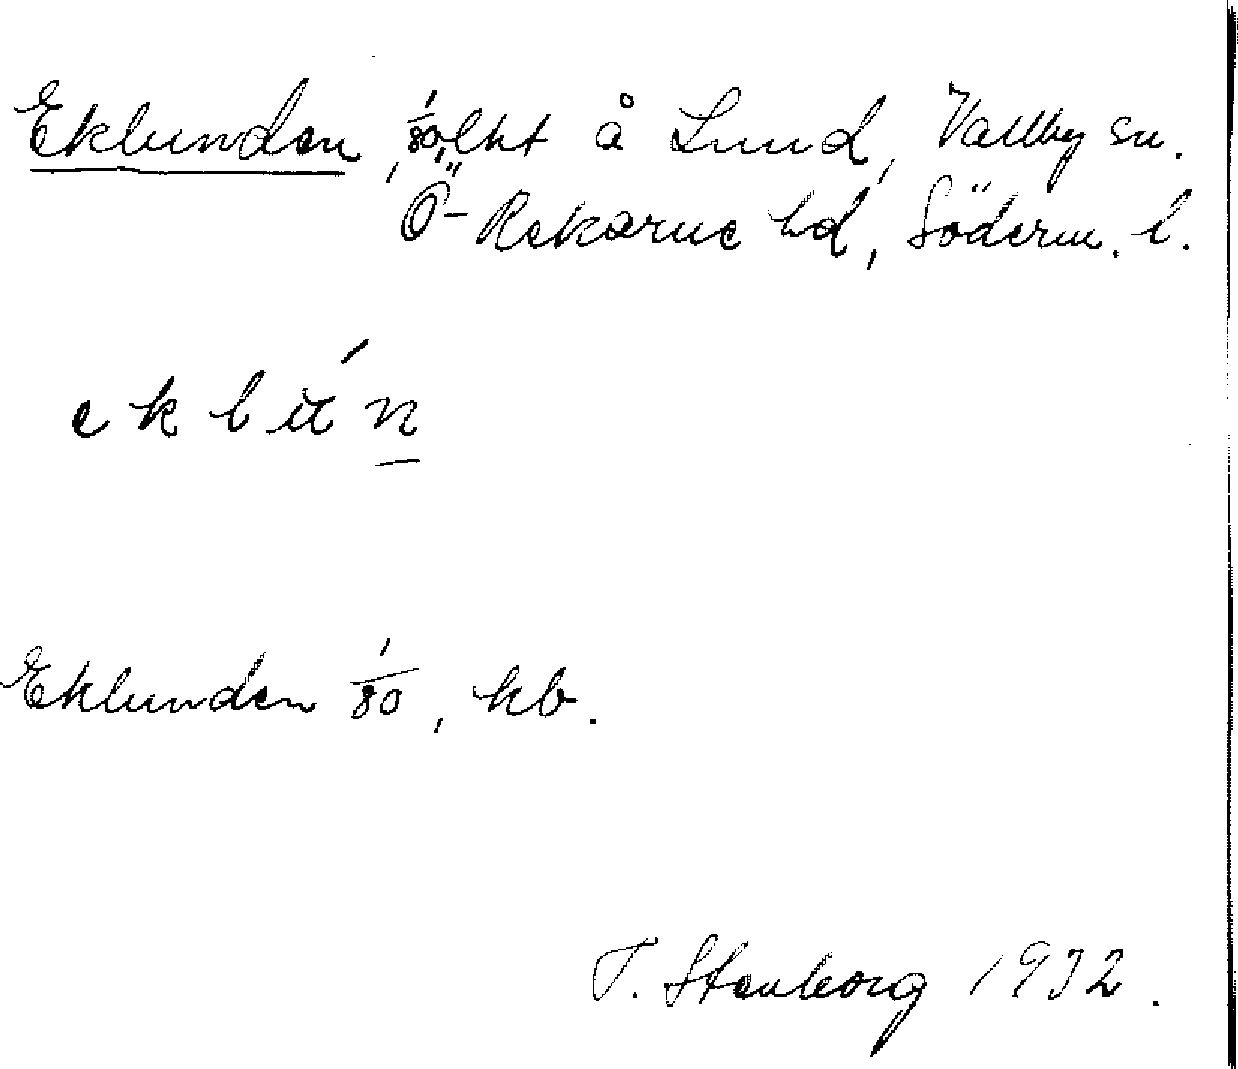 Eklunden, 1/80, lht å Lund, Vallby sn.
Ö-Rekarne hd, Söderm. l.
Eklunden 1/80, kb.
T. Stenborg 1932.